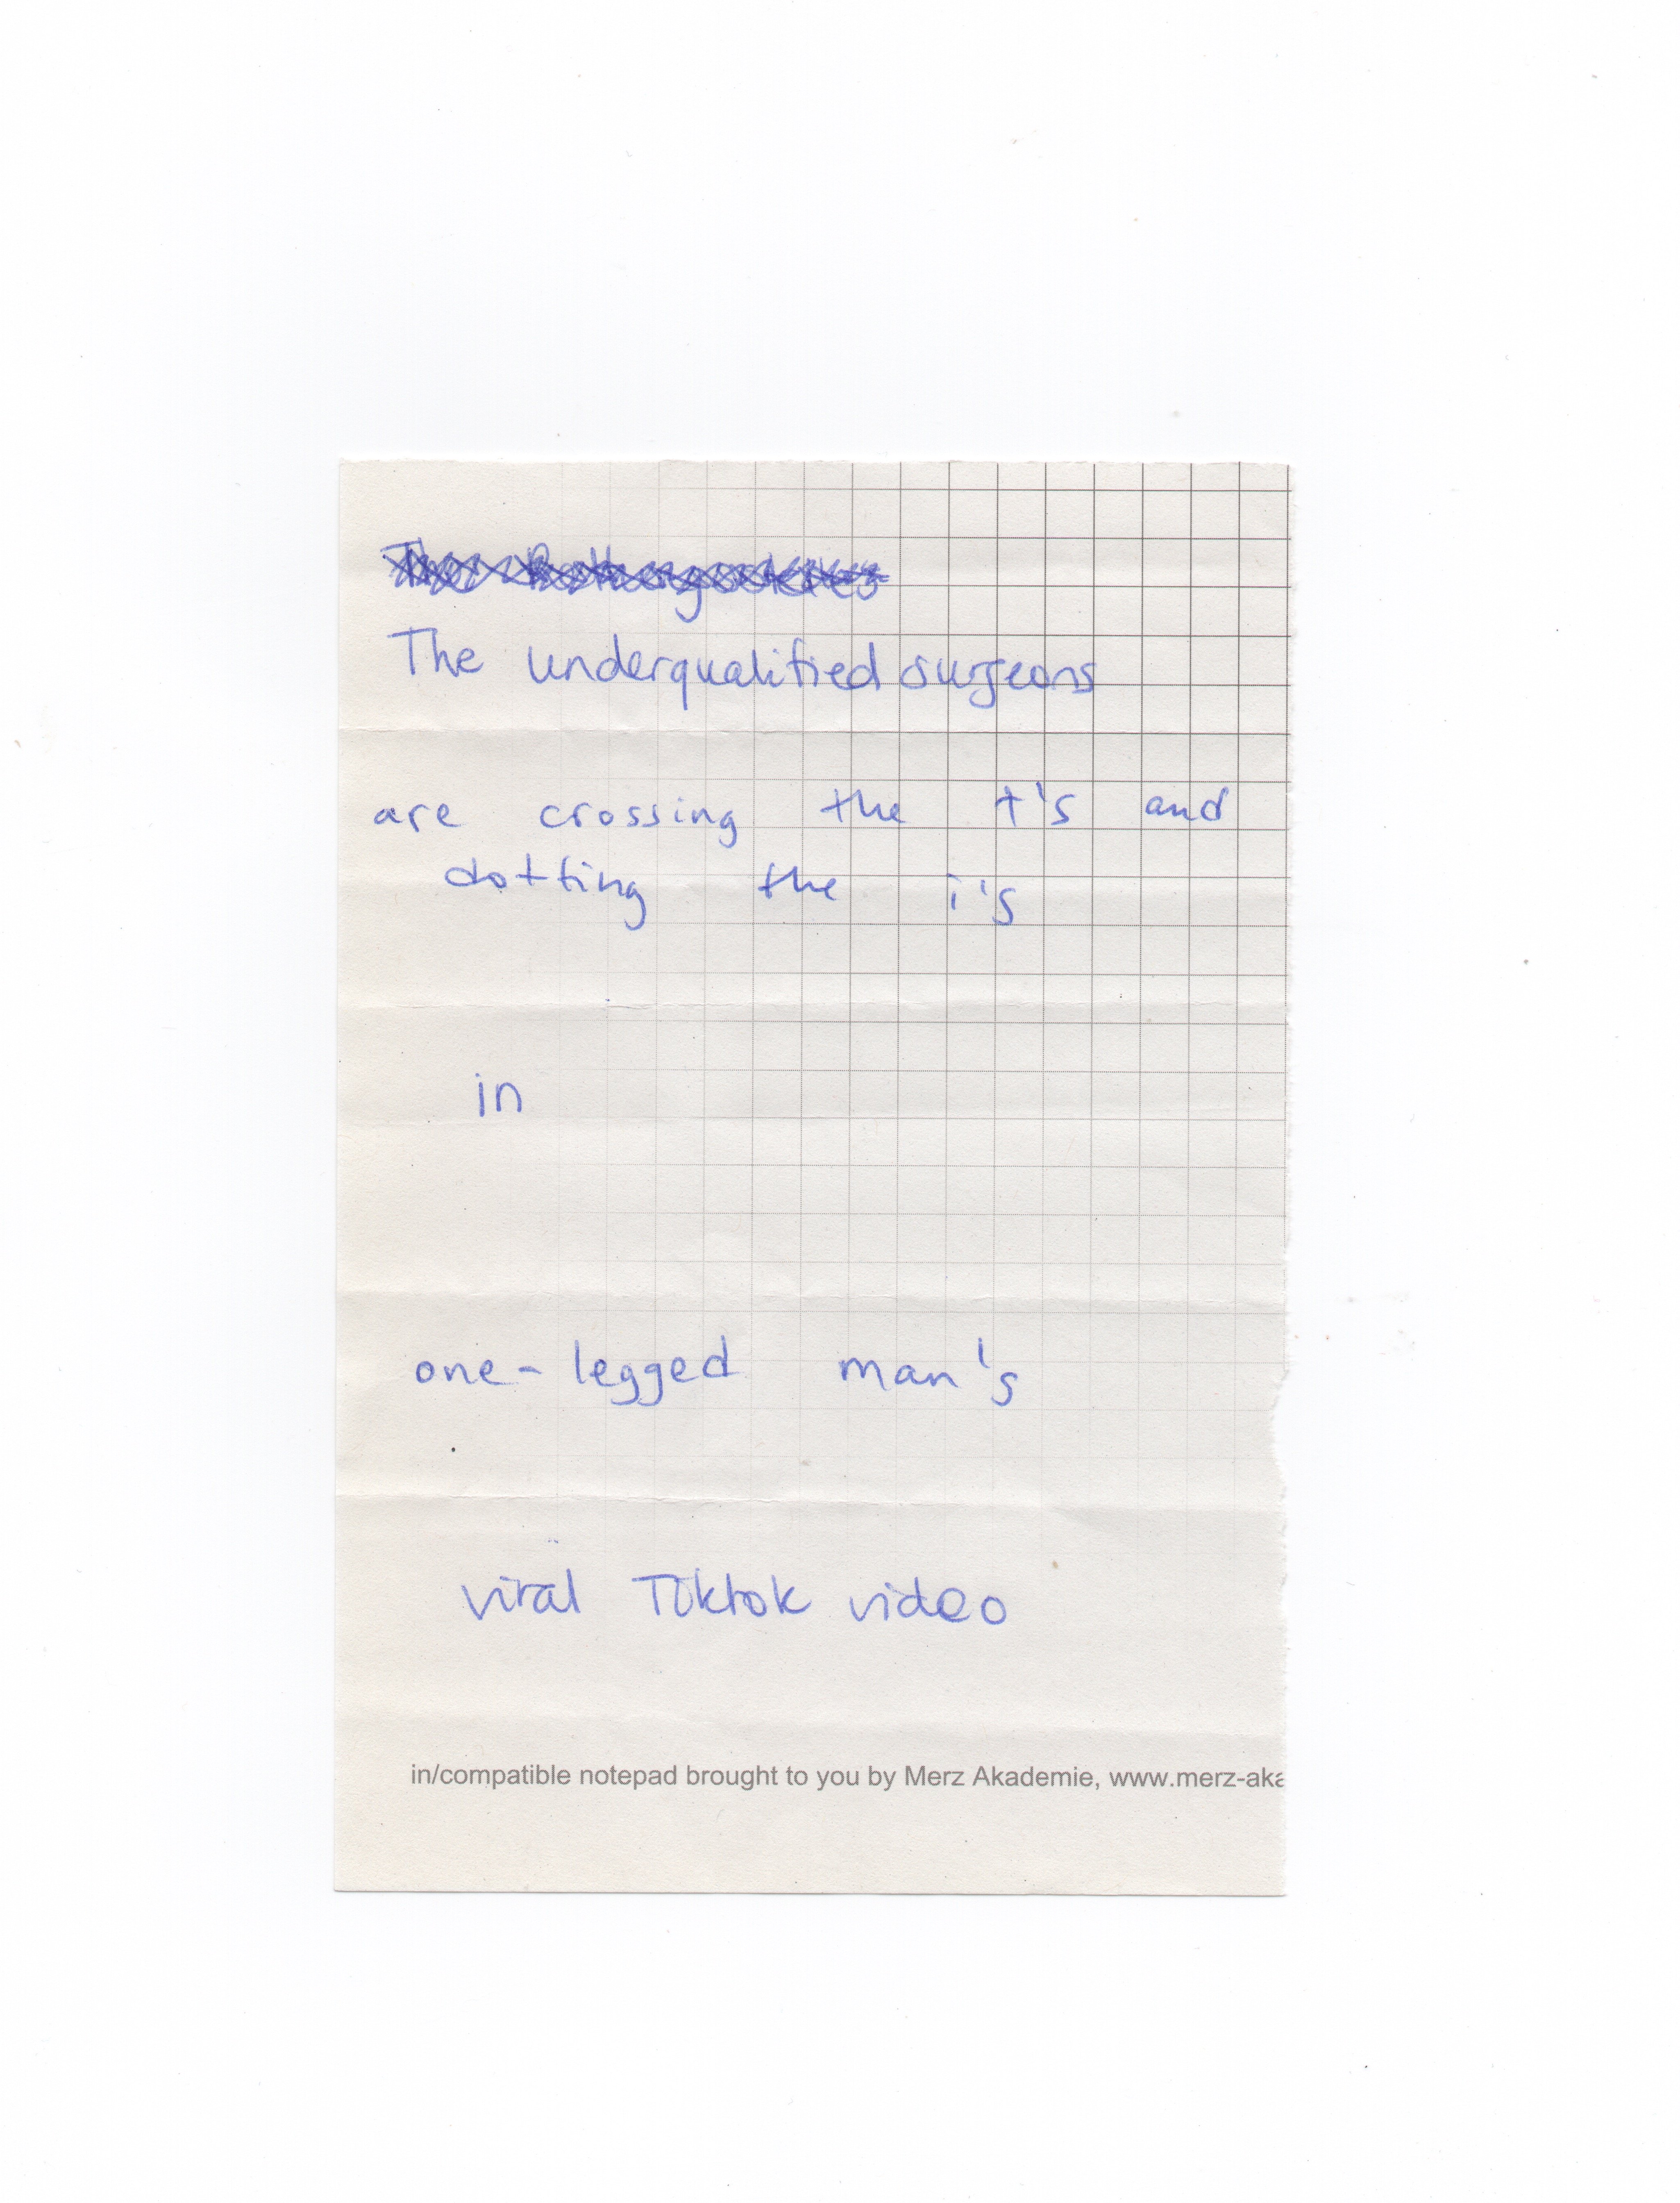 The underqualified surgeons
are crossing the t's and
dotting the i's
in
one-legged man's
viral Tiktok video
in/compatible notepad brought to you by Merz Akademie, www.merz-aka